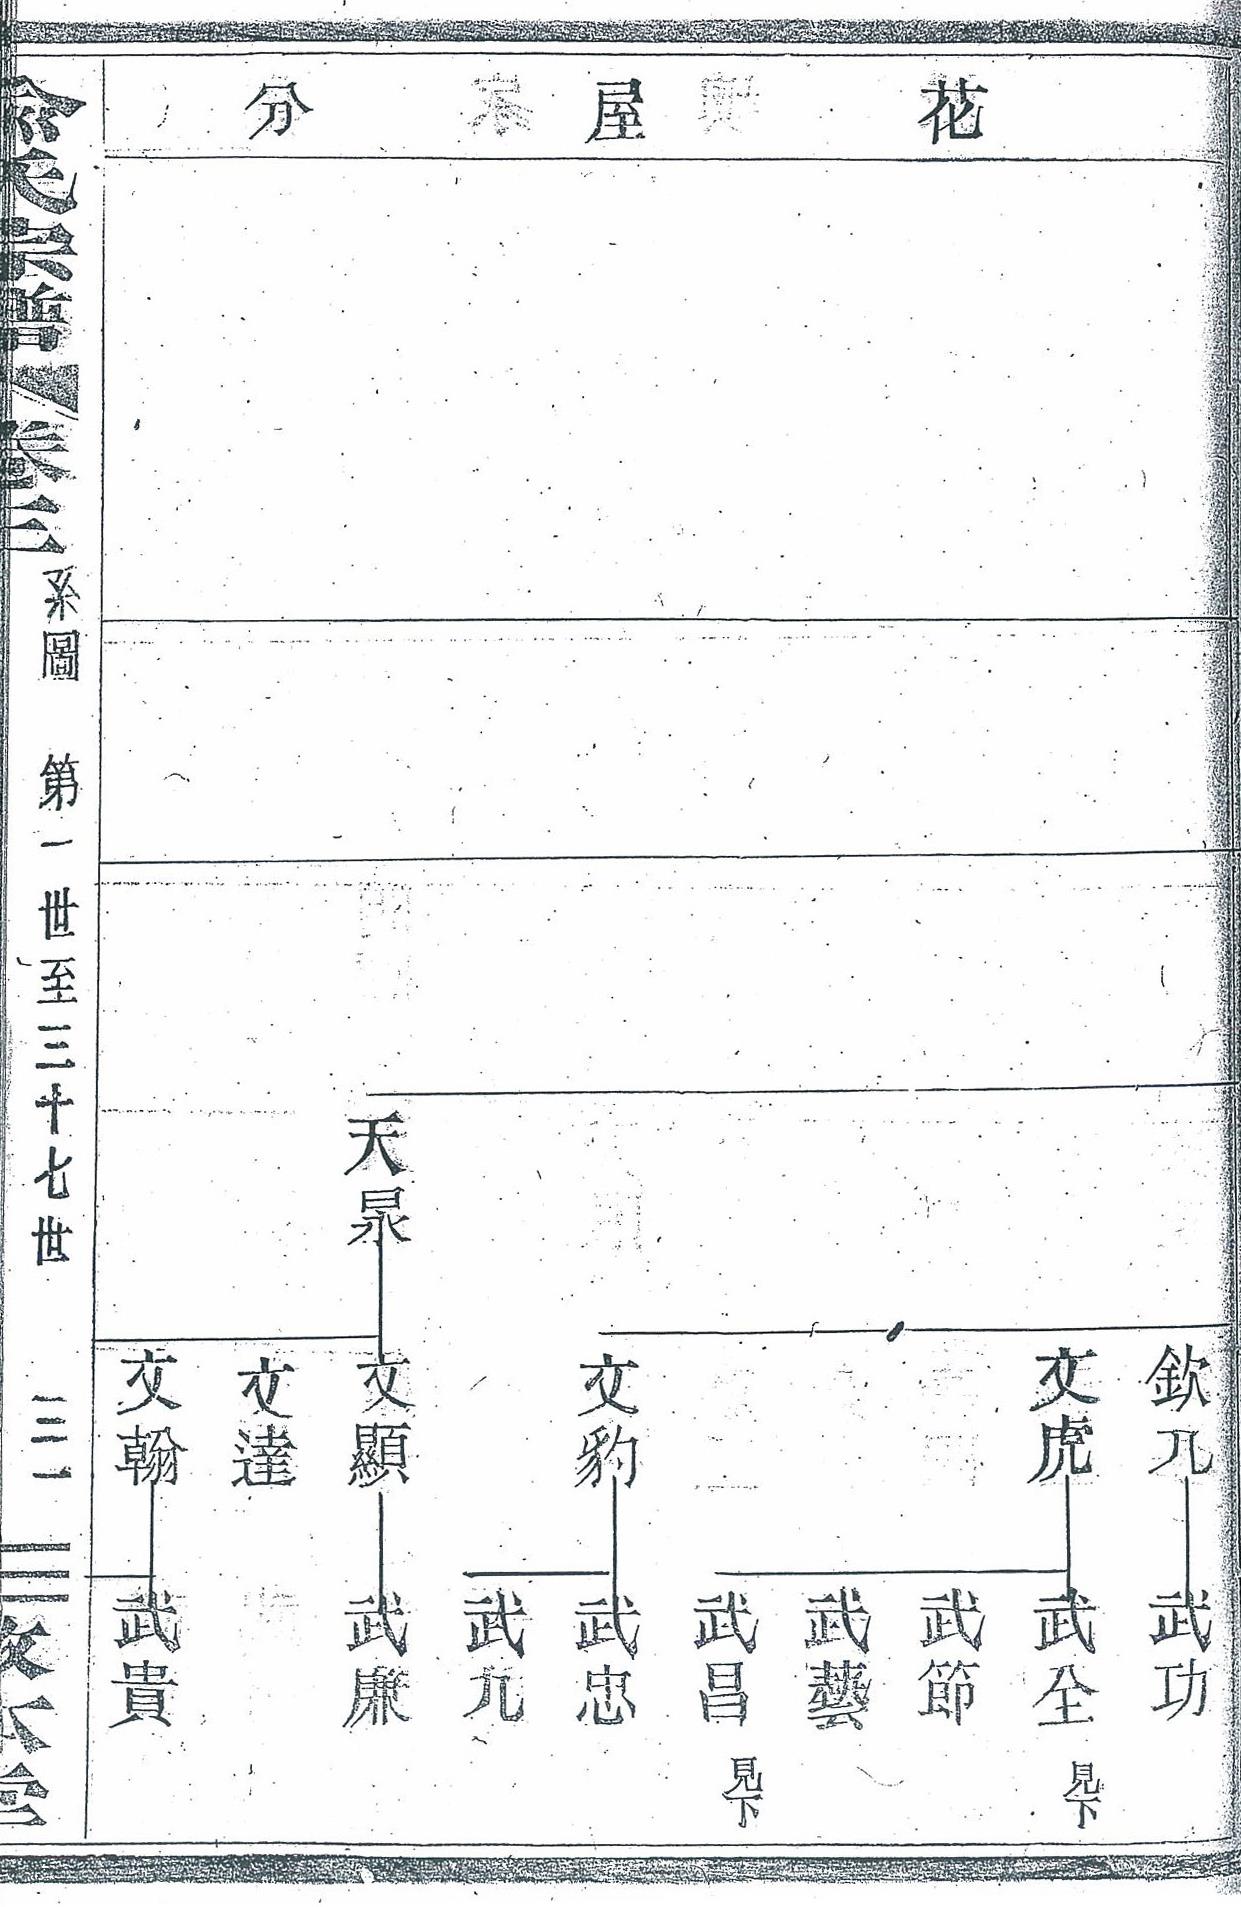 花屋分
天泉
欽九
文虎
文豹
文顯
文達
文翰
武功
武全
見下
武節
武藝
武昌
見下
武忠
武九
武廉
武貴
俞氏宗譜
卷三
系圖
第一世至三十七世
三一
敦本堂